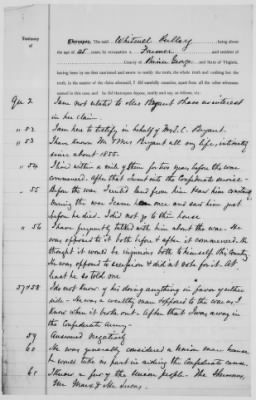 Testimony
of
Thereupon, Said Whitmell Pullary, being above
the age of 25 years; by occupation a Farmer and resident of
County of Prince George and State of Virginia,
having been by me first cautioned and sworn to testify the truth, the whole truth and nothing but the
truth, in the matter of the claim aforesaid, I did carefully examine, apart from all the other witnesses
named in this cause, and he did thereupon depose, testify and say, as follows, viz:
Que 2 I am not related to Mrs Bryant & have no interest
in her claim
" 52 I am here to testify in behalf of Mrs. C. Bryant.
" 53 I have known Mr & Mrs Bryant all my life; intimately
since about 1855.
" 54 I lived within a mile of them for two years before the war
commenced. After that I went into the Confederate service
" 55 Before the war I rented land from him & saw him constantly
During the war I came home once and saw him just
before he died. I did not go to their house
" 56 I have frequently talked with him about the war. He
was opposed to it both before & after it commenced. He
thought it would be injurious both to himself & the country
He was opposed to secession & did not vote for it. At
least he so told me
57 & 58 I do not know of his doing anything in favor of either
side. He was a wealthy man & opposed to the war as I
knew when it broke out. After that I was away in
the Confederate army.
59 Answered negatively
60 He was generally considered a Union man because
he would take no part in aiding the Confederate cause.
61 I knew a few of the Union people. The
Mr & Mr.